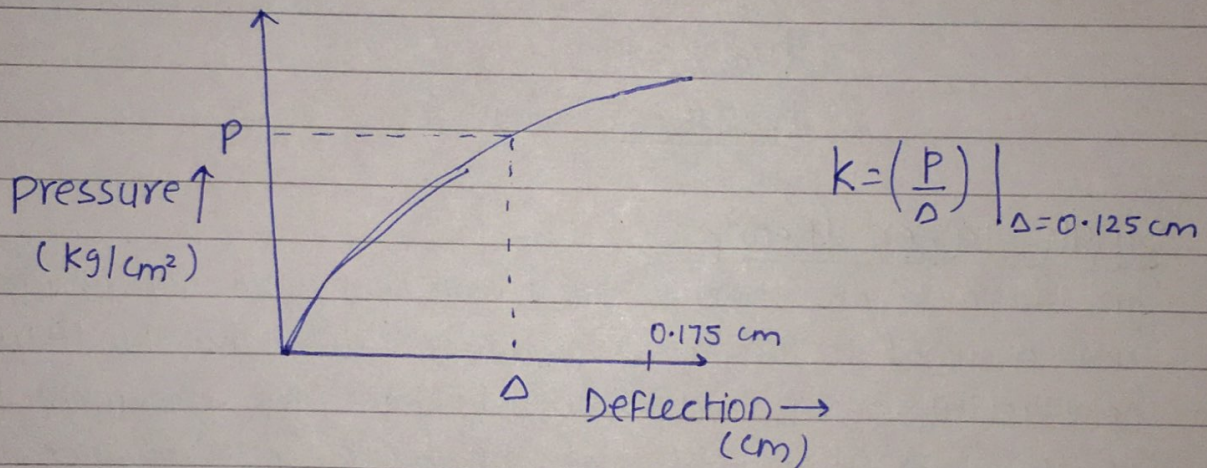 P
Pressure ↑
(Kg/cm²)
K=(P/Δ)|Δ=0.125 cm
0.175 cm
Δ
Deflection →
(cm)